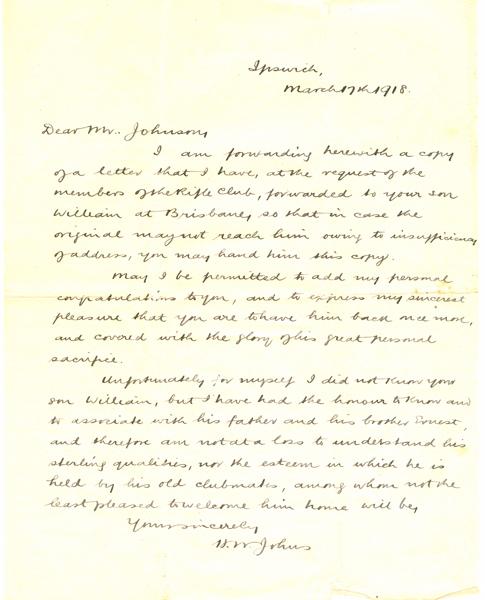 Ipswich,
March 17th 1918.
Dear Mr. Johnson,
I am forwarding herewith a copy
of a letter that I have, at the request of the
members of the Rifle Club, forwarded to your son
William at Brisbane, so that in case the
original may not reach him owing to insufficiency
of address, you may hand him this copy.
May I be permitted to add my personal
congratulations to you, and to express my sincerest
pleasure that you are to have him back once more,
and covered with the glory of his great personal
sacrifice.
Unfortunately for myself I did not know your
son William, but I have had the honour to know and
to associate with his father and his brother Ernest,
and therefore am not at a loss to understand his
sterling qualities, nor the esteem in which he is
held by his old clubmates, among whom not the
least pleased to welcome him home will be,
Yours sincerely
H. W. Johns